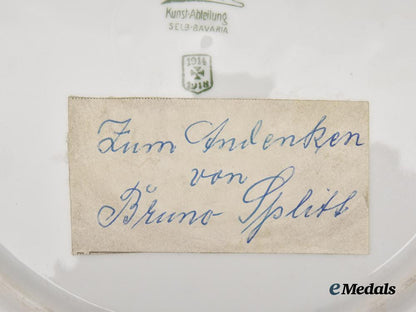 Kunst-Abteilung
SELB-BAVARIA
1914
1918
Zum Andenken
von
Bruno Splitt
eMedals